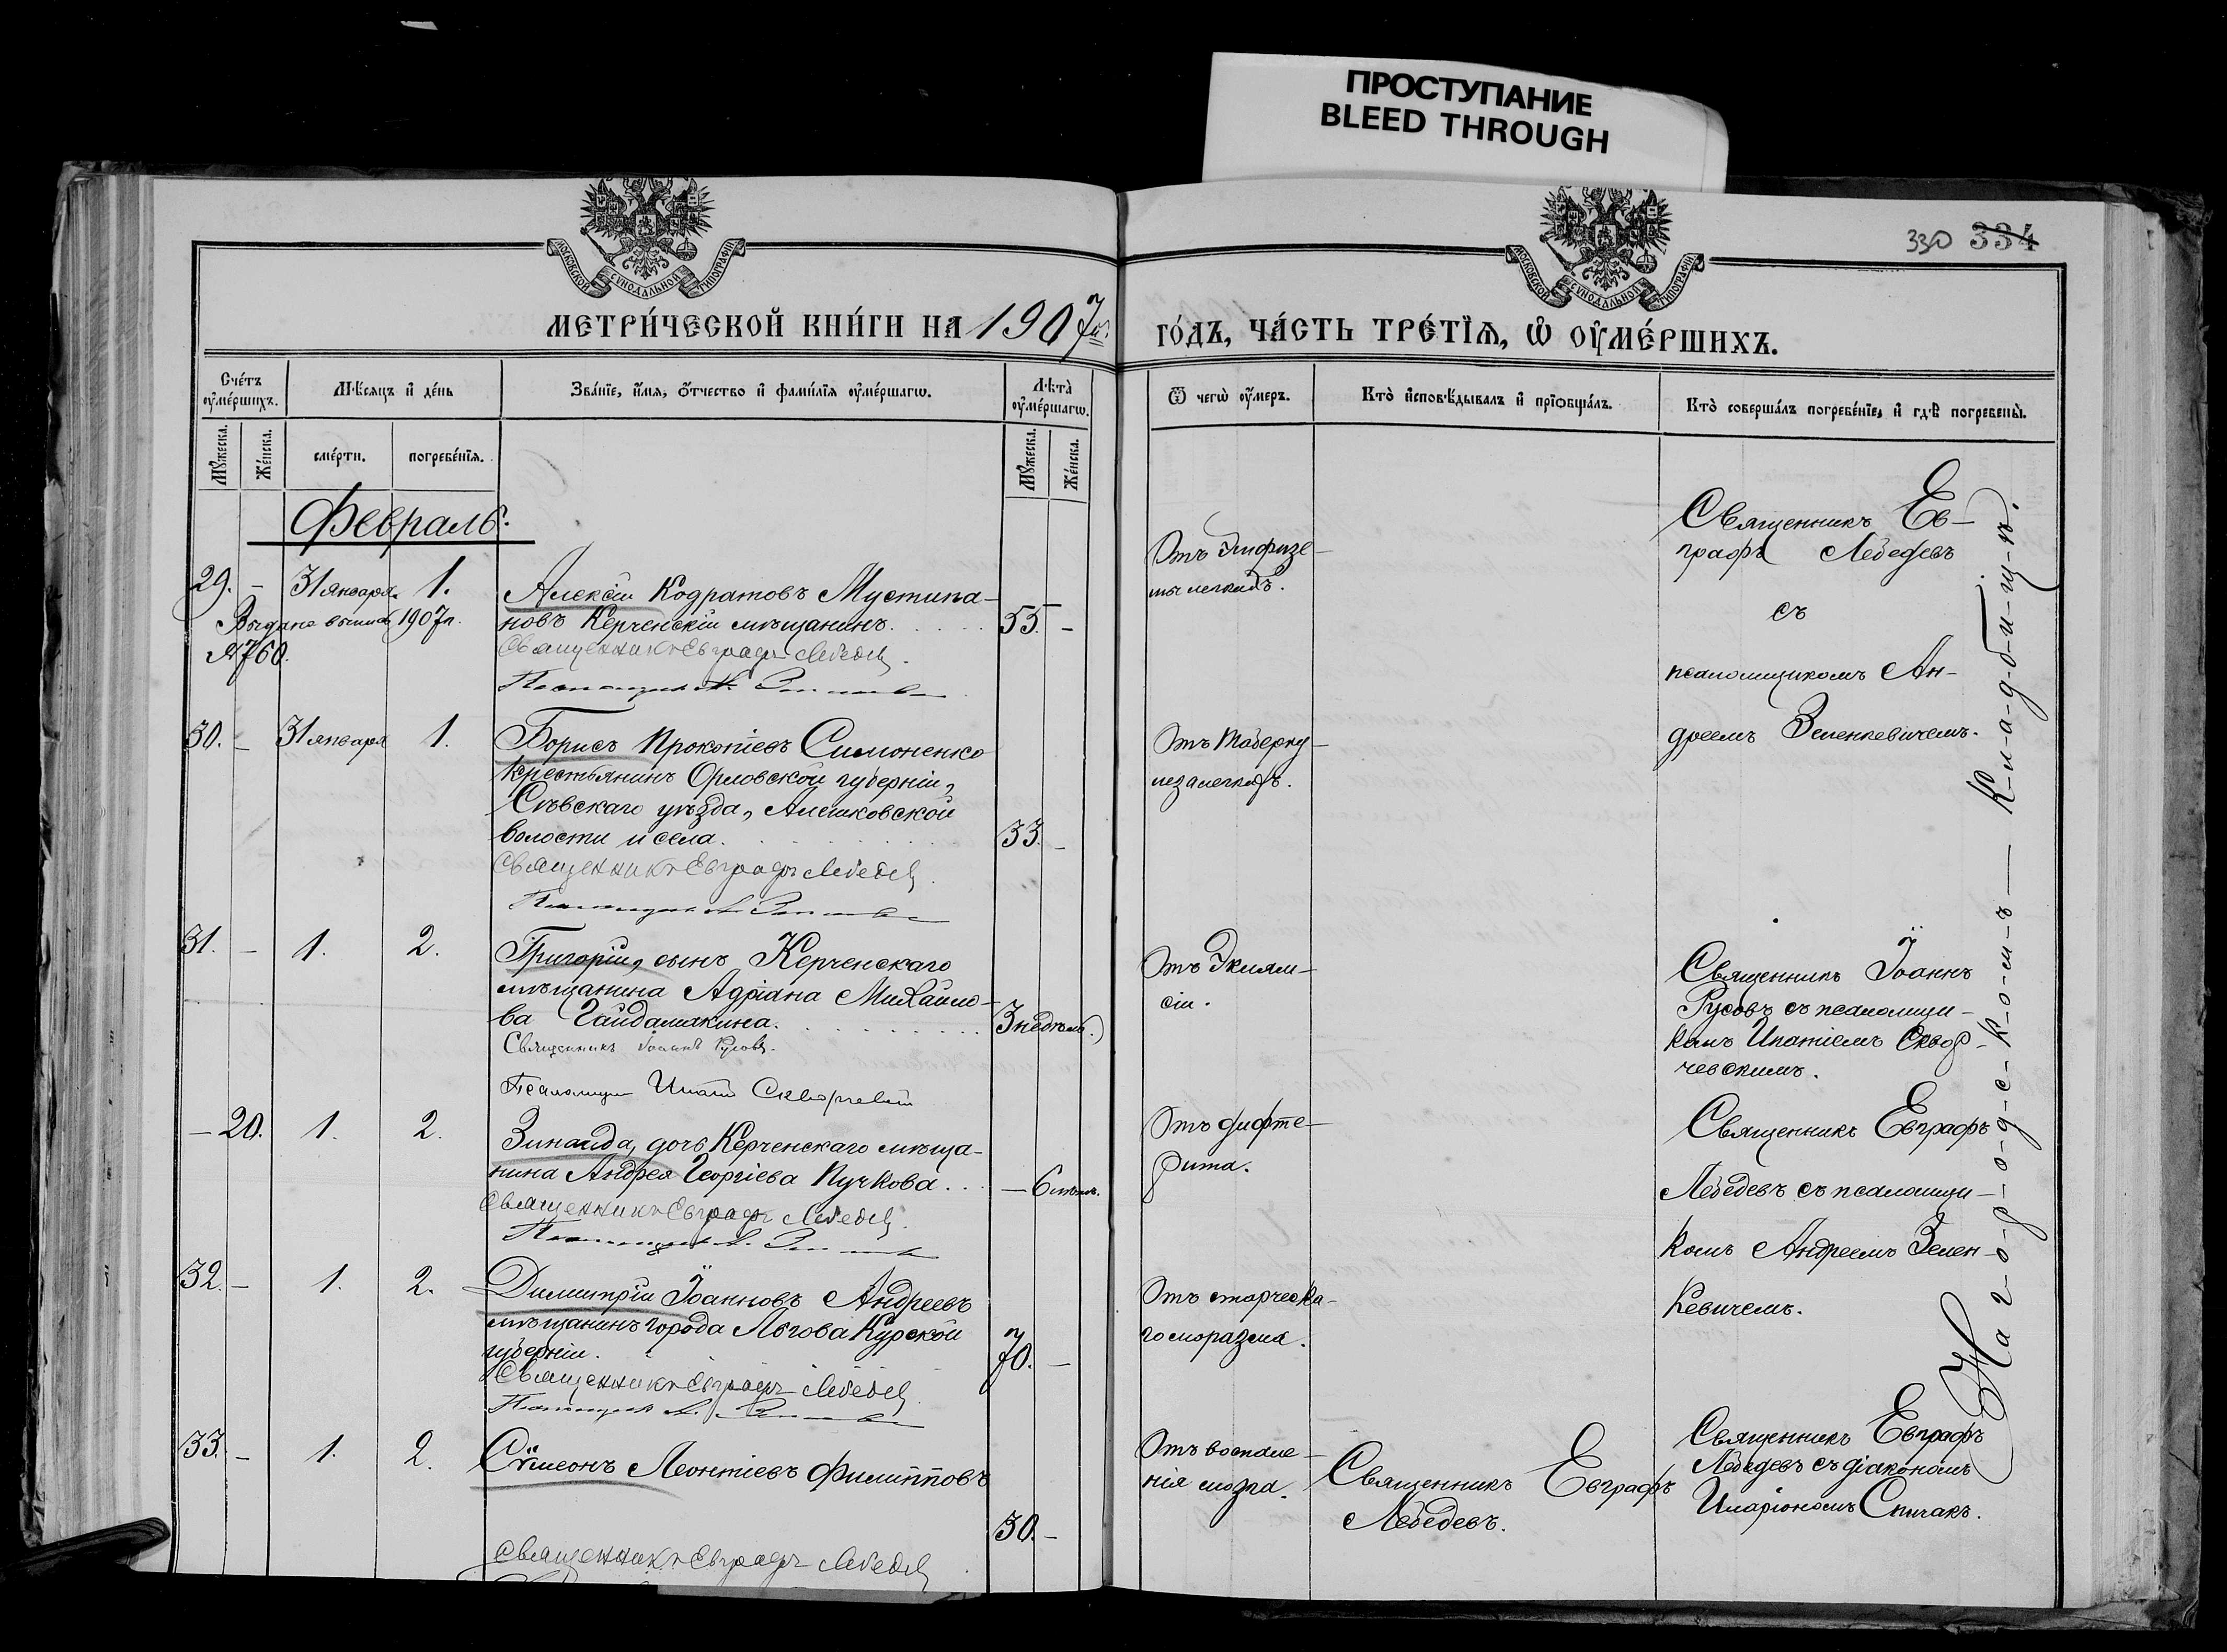 ПРОСТУПАНИЕ
BLEED THROUGH
МОСКОВСКОЙ СѴНОДАЛЬНОЙ ТИПОГРАФІИ
МОСКОВСКОЙ СѴНОДАЛЬНОЙ ТИПОГРАФІИ
330 334
МЕТРИ́ЧЕСКОЙ КНИ́ГИ НА 1907й
ГО́ДЪ, ЧА́СТЬ ТРЕ́ТЇѦ, Ѡ҆ ОУ҆МЕ́РШИХЪ.
Сче́тъ оу҆ме́ршихъ.
Мѣ́сяцъ и҆ де́нь
Зва́нїе, и҆́мя, ѻ҆́тчество и҆ фами́лїя оу҆ме́ршагѡ.
Лѣта̀ оу҆ме́ршагѡ.
Ѿ чегѡ̀ оу҆́меръ.
Кто̀ и҆сповѣ́дывалъ и҆ прїѻбща́лъ.
Кто̀ соверша́лъ погребе́нїе, и҆ гдѣ̀ погребены̀.
Мꙋ́жеска.
Же́нска.
сме́рти.
погребе́нїя.
Мꙋ́жеска.
Же́нска.
Февраль.
29. - 31 января 1.
1907 г.
№760.
Алексѣй Кодратовъ Мустипа-
новъ Керченскій мѣщанинъ. 55. -
Священникъ Евграфъ Лебедевъ.
Отъ Эмфизе-
мы легкихъ.
Священникъ Ев-
графъ Лебедевъ
съ
псаломщикомъ Ан-
дреемъ Зеленкевичемъ.
30. - 31 января 1.
Борисъ Прокопіевъ Симоненко
крестьянинъ Орловской губерніи,
Сѣвскаго уѣзда, Алешковской
волости и села. 33. -
Священникъ Евграфъ Лебедевъ.
Отъ Туберку-
леза легкихъ.
31. - 1. 2.
Григорій, сынъ Керченскаго
мѣщанина Адріана Михайло-
ва Гайдамакина. 3 недѣль.
Священникъ Іоаннъ Русовъ.
Псаломщикъ Ипатій Скворчевскій
Отъ Эклям-
сіи.
Священникъ Іоаннъ
Русовъ съ псаломщи-
комъ Ипатіемъ Сквор-
чевскимъ.
- 20. 1. 2.
Зинаида, дочь Керченскаго мѣща-
нина Андрея Георгіева Пучкова. - 6 мѣсяц.
Священникъ Евграфъ Лебедевъ.
Отъ дифте-
рита.
Священникъ Евграфъ
Лебедевъ съ псаломщи-
комъ Андреемъ Зелен-
кевичемъ.
32. - 1. 2.
Димитрій Іоанновъ Андреевъ
мѣщанинъ города Льгова Курской
губерніи. 70. -
Священникъ Евграфъ Лебедевъ.
Отъ старческа-
го маразма.
33. - 1. 2.
Сѵмеонъ Леонтіевъ Филипповъ
30. -
Священникъ Евграфъ Лебедевъ
Отъ воспале-
нія мозга.
Священникъ Евграфъ
Лебедевъ.
Священникъ Евграфъ
Лебедевъ съ діакономъ
Иларіономъ Спичакъ.
На г-о-р-о-д-с-к-о-м-ъ — к-л-а-д-б-и-щ-ѣ.